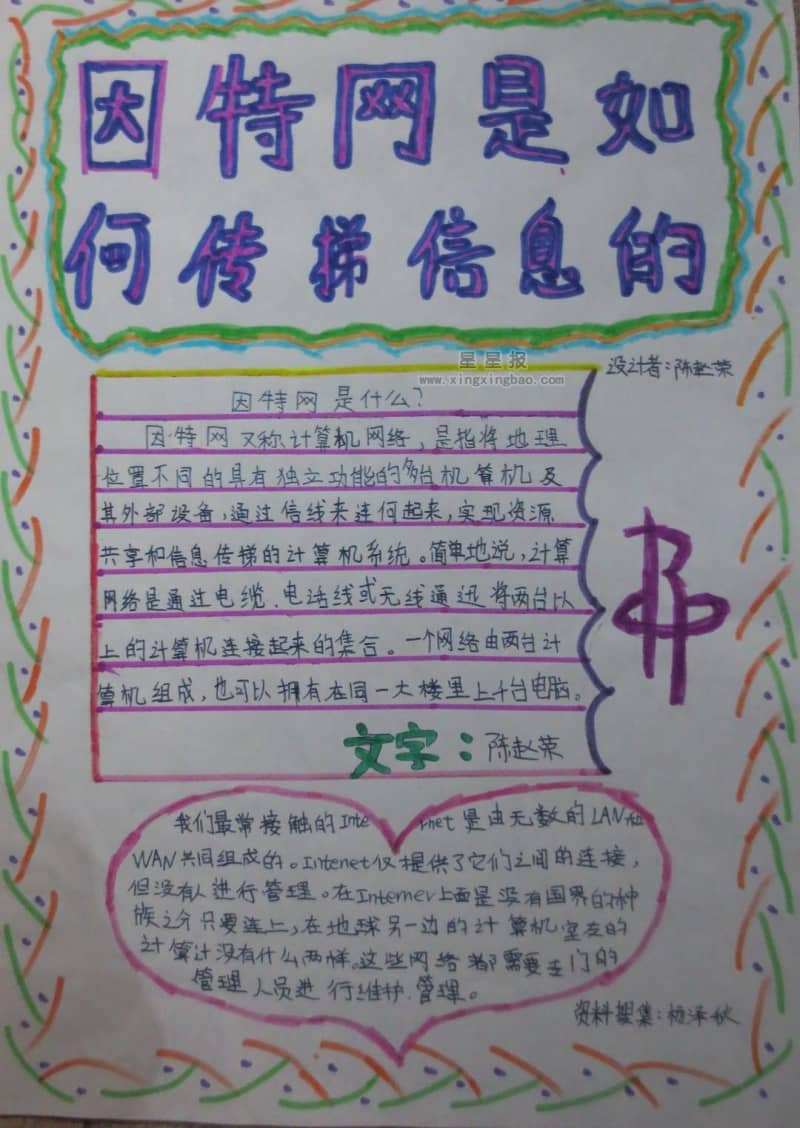 因特网是如
何传递信息的
星星报
www.xingxingbao.com
设计者:陈赵荣
因特网是什么?
因特网又称计算机网络,是指将地理
位置不同的具有独立功能的多台机算机及
其外部设备,通过信线来连何起来,实现资源
共享和信息传梯的计算机系统。简单地说,计算
网络是通过电缆、电话线或无线通迅将两台以
上的计算机连接起来的集合。一个网络由两台计
算机组成,也可以拥有在同一大楼里上千台电脑。
文字:陈赵荣
我们最常接触的Inte rnet是由无数的LAN和
WAN共同组成的。Intenet仅提供了它们之间的连接,
但没有人进行管理。在Interner上面是没有国界的种
族之分只要连上,在地球另一边的计算机室在的
计算计没有什么两样。这些网络都需要专门的
管理人员进行维护、管理。
资料搜集: